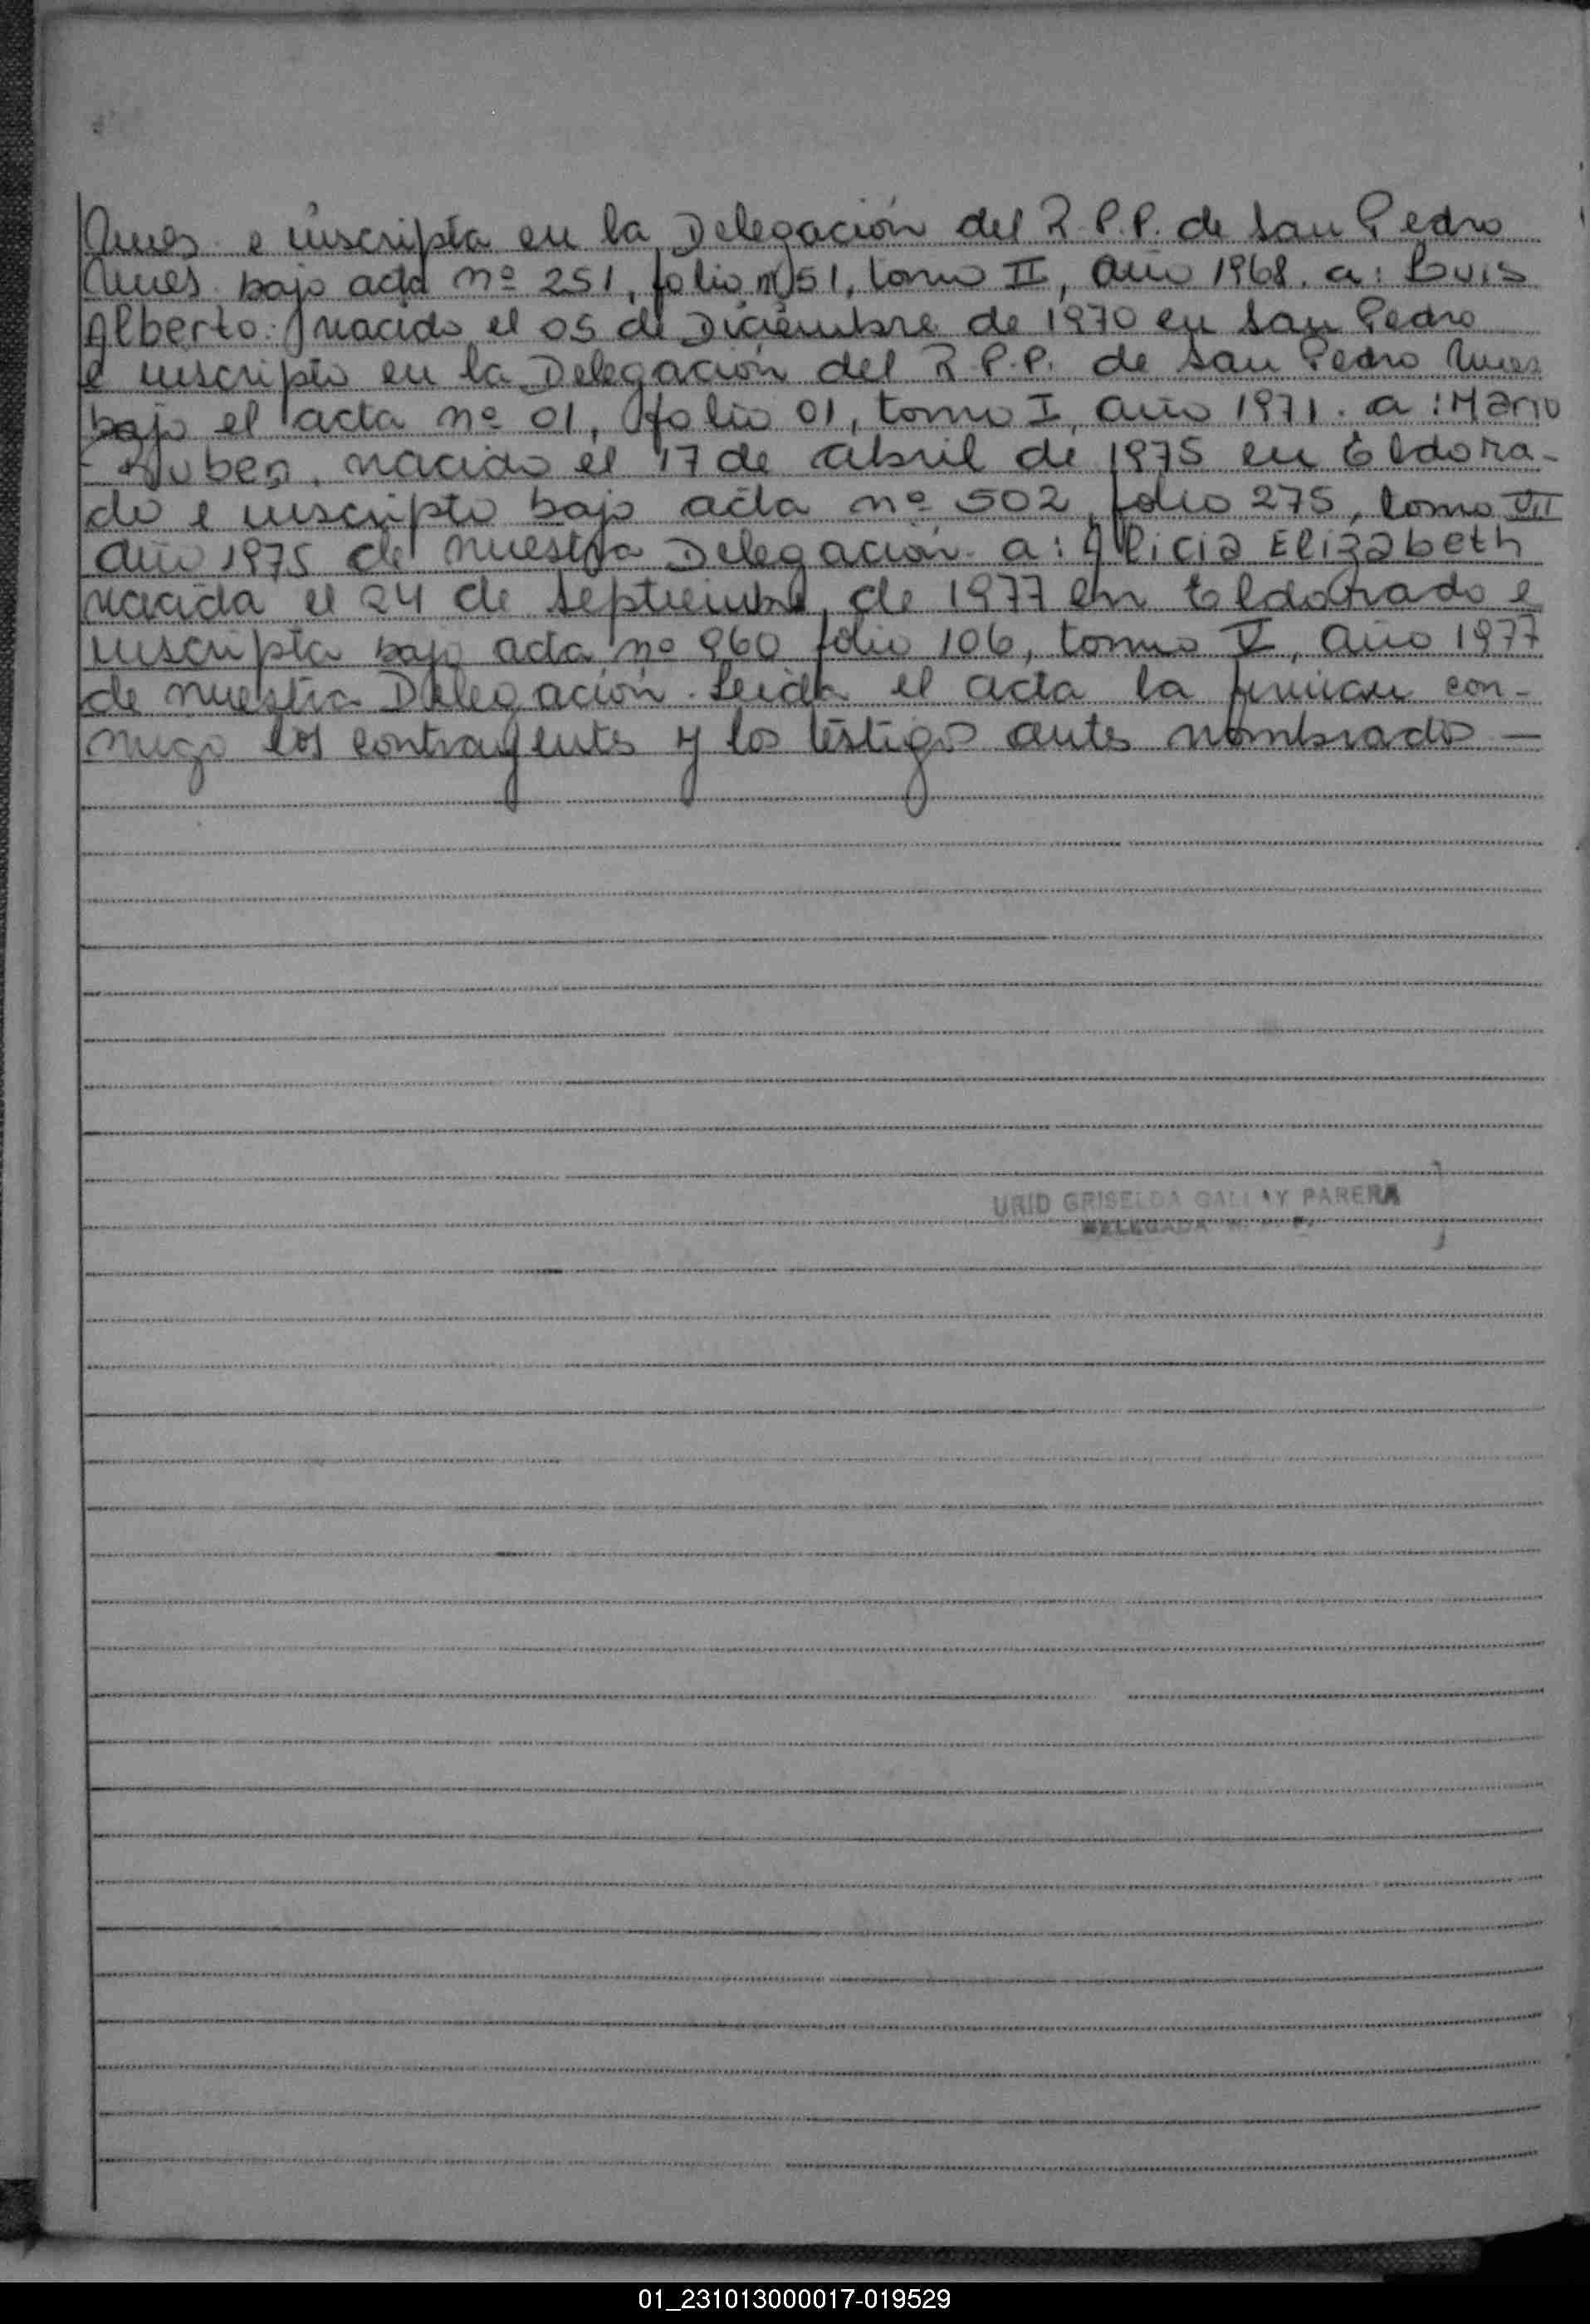 Mnes. e inscripta en la Delegación del R.P.P. de San Pedro
Mnes. bajo acta nº 251, folio 51, tomo II, año 1968. a: Luis
Alberto: nacido el 05 de Diciembre de 1970 en San Pedro
e inscripto en la Delegación del R.P.P. de San Pedro Mnes
bajo el acta nº 01, folio 01, tomo I, año 1971. a: Mario
Ruben, nacido el 17 de abril de 1975 en Eldora-
do e inscripto bajo acta nº 502, folio 275, tomo VII
año 1975 de nuestra Delegación. a: Alicia Elizabeth
nacida el 24 de Septiembre, de 1977 en Eldorado e
inscripta bajo acta nº 960 folio 106, tomo V, año 1977
de nuestra Delegación. Leida el acta la firman con-
migo los contrayentes y los testigos antes nombrados —
URID GRISELDA GALLAY PARERA
DELEGADA
01_231013000017-019529